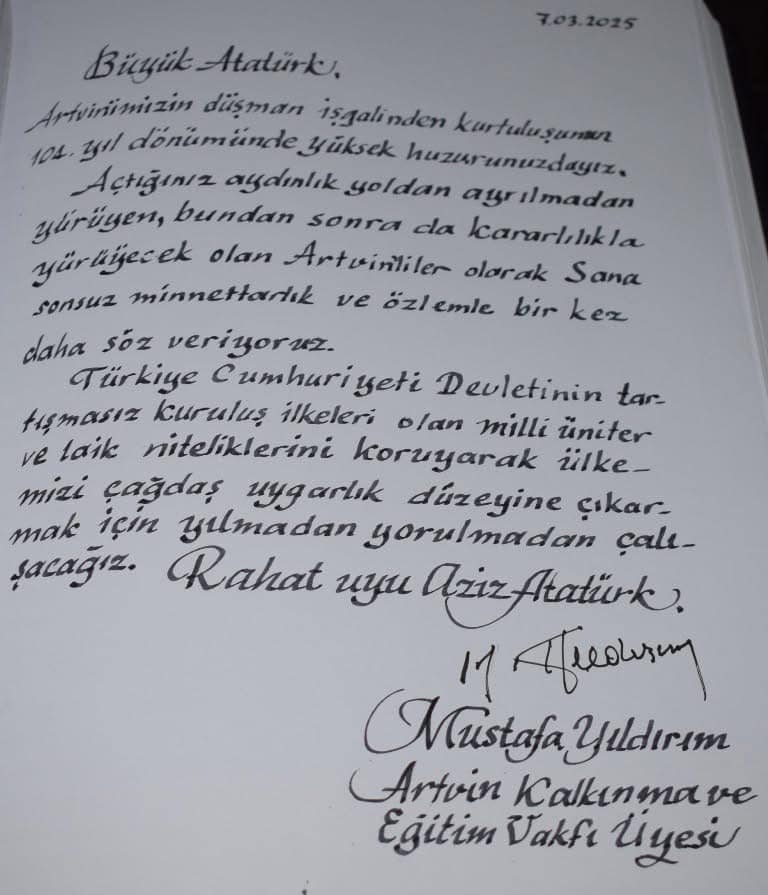 7.03.2025
Büyük Atatürk,
Artvinimizin düşman işgalinden kurtuluşunun
104. yıl dönümünde yüksek huzurunuzdayız.
Açtığınız aydınlık yoldan ayrılmadan
yürüyen, bundan sonra da kararlılıkla
yürüyecek olan Artvinliler olarak Sana
sonsuz minnettarlık ve özlemle bir kez
daha söz veriyoruz.
Türkiye Cumhuriyeti Devletinin tar-
tışmasız kuruluş ilkeleri olan milli üniter
ve laik niteliklerini koruyarak ülke-
mizi çağdaş uygarlık düzeyine çıkar-
mak için yılmadan yorulmadan çalı-
şacağız. Rahat uyu Aziz Atatürk.
Mustafa Yıldırım
Artvin Kalkınma ve
Eğitim Vakfı Üyesi